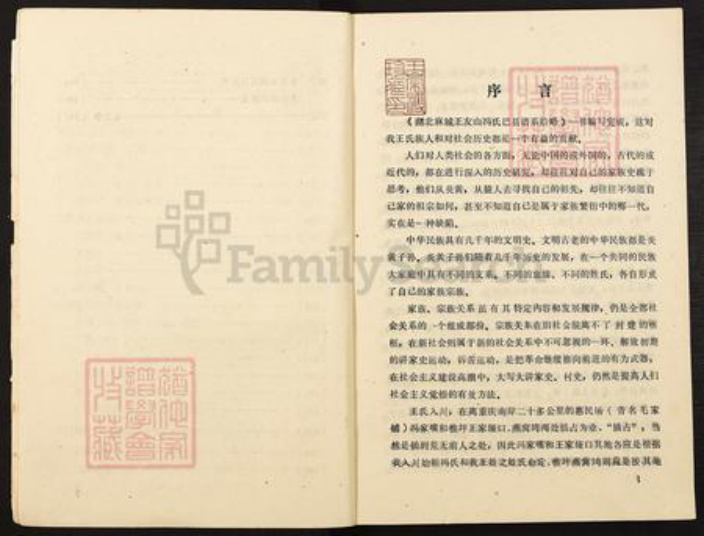 序言
《湖北麻城王友山冯氏巴县谱系后略》一书编写完成，这对
我王氏族人和对社会历史都是一个有益的贡献。
人们对人类社会的各方面，无论中国的或外国的，古代的或
近代的，都在进行深入的历史研究，却往往对自己的家族史疏于
思考，他们从炎黄，从猿人去寻找自己的祖先，却往往不知道自
己家的祖宗如何，甚至不知道自己是属于家族繁衍中的哪一代，
实在是一种缺陷。
中华民族具有几千年的文明史。文明古老的中华民族都是炎
黄子孙。炎黄子孙们随着几千年历史的发展，在一个共同的民族
大家庭中具有不同的支系、不同的血缘、不同的姓氏，各自形成
了自己的家族宗族。
家族、宗族关系虽有其特定内容和发展规律，仍是全部社
会关系的一个组成部份。宗族关系在旧社会脱离不了封建的桎
梏，在新社会则属于新的社会关系中不可忽视的一环。解放初期
的讲家史运动，诉苦运动，是把革命继续推向前进的有力武器，
在社会主义建设高潮中，大写大讲家史、村史，仍然是提高人们
社会主义觉悟的有效方法。
王氏入川，在离重庆南岸二十多公里的惠民场（古名毛家
铺）冯家嘴和樵坪王家堰口、燕窝垮两处插占为业，“插占”，当
然是插到荒无前人之处，因此冯家嘴和王家堰口其地名应是根据
我入川始祖冯氏和我王姓之姓氏命定。樵坪燕窝垮则是按其地
1
譜學會
收藏
譜學會
FamilySearch